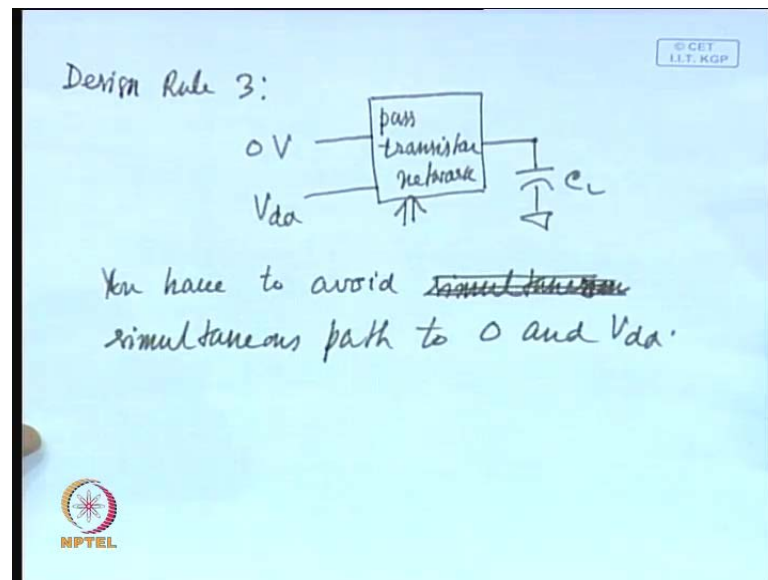 © CET
I.I.T. KGP
Design Rule 3:
0 V
Vdd
pass
transistor
network
CL
You have to avoid
simultaneous path to 0 and Vdd.
NPTEL